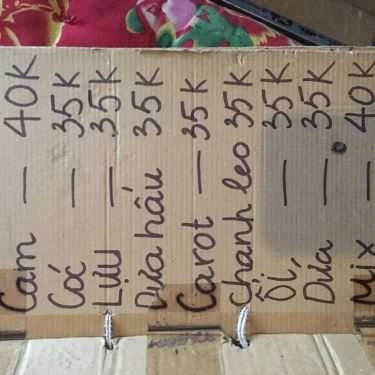 Cam — 40K
Cóc — 35K
Lựu — 35K
Dưa hấu 35K
Carot — 35K
chanh leo 35K
Ổi, — 35K
Dứa — 35K
Mix — 40K